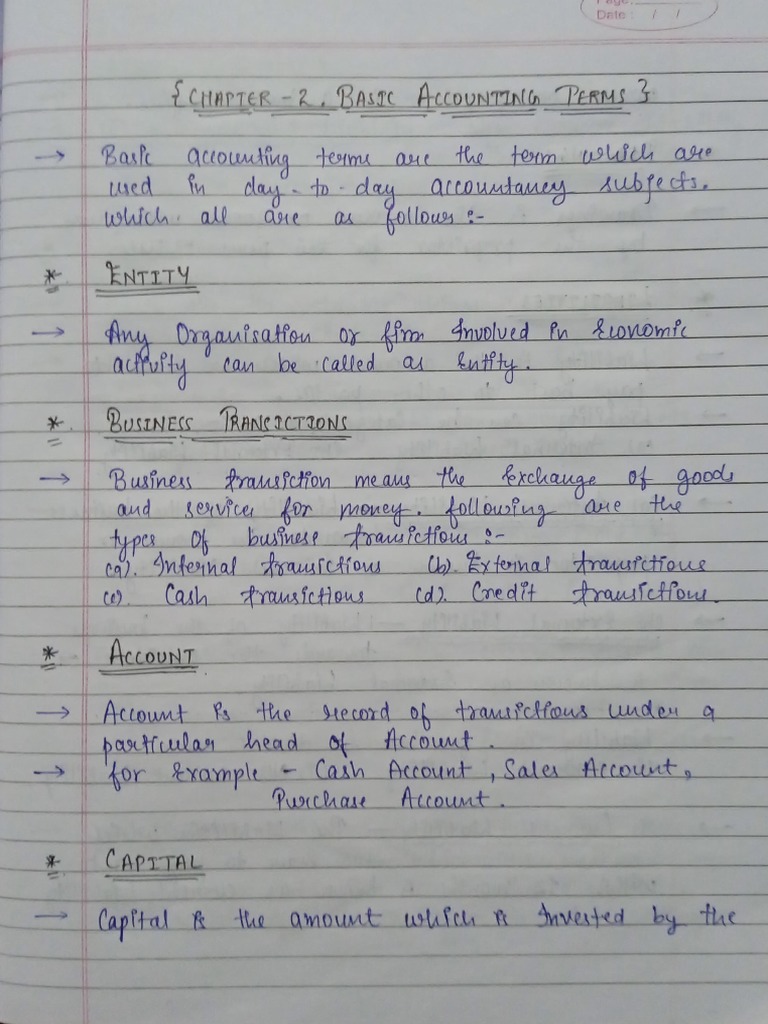 Page:
Date: / /
{CHAPTER-2. BASIC ACCOUNTING TERMS}
→ Basic accounting terms are the term which are
used in day-to-day accountancy subjects.
which all are as follows :-
* ENTITY
→ Any Organisation or firm Involved in Economic
activity can be called as Entity.
* BUSINESS TRANSICTIONS
→ Business transiction means the Exchange of goods
and services for money. following are the
types of business transictions :-
(a). Internal transictions (b). External transictions
(c). Cash transictions (d). Credit transictions.
* ACCOUNT
→ Account is the record of transictions under a
particular head of Account.
→ for Example - Cash Account, Sales Account,
Purchase Account.
* CAPITAL
→ Capital is the amount which is Invested by the